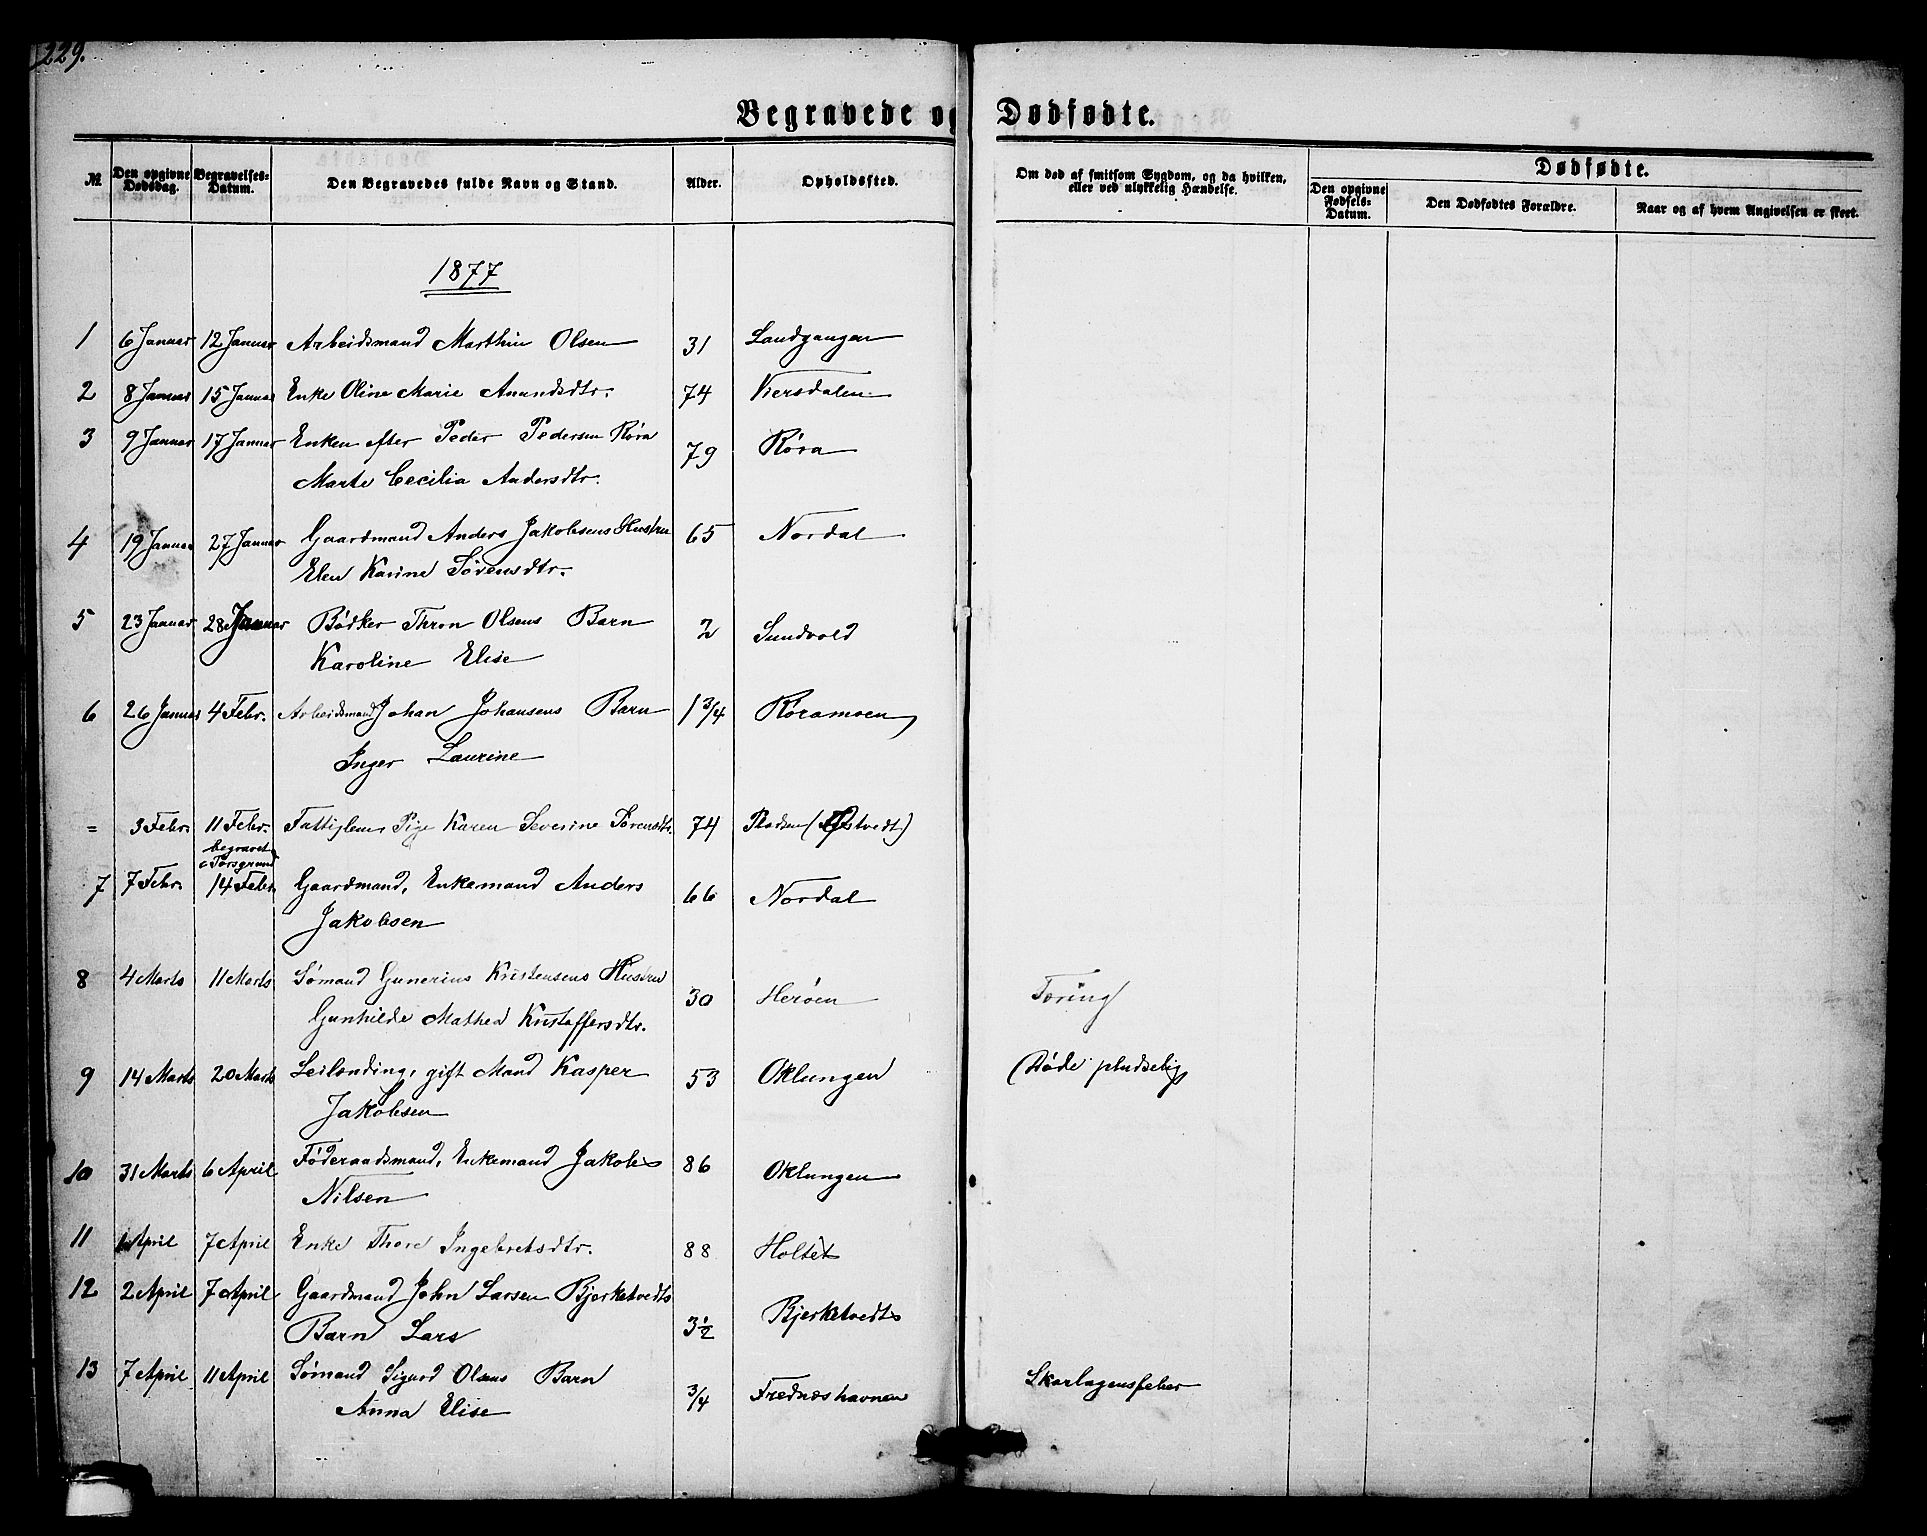 229.
Begravede og Dødfødte.
№ Den opgivne Dødsdag. Begravelses-Datum. Den Begravedes fulde Navn og Stand. Alder. Opholdssted. Om død af smitsom Sygdom, og da hvilken, eller ved ulykkelig Hændelse. Dødfødte.
Den opgivne Fødsels-Datum. Den Dødfødtes Forældre. Naar og af hvem Angivelsen er skeet.
1877
1 6 Januar 12 Januar Arbeidsmand Marthin Olsen 31 Landgangen
2 8 Januar 15 Januar Enke Oline Marie Amundsdtr. 74 Versdalen
3 9 Januar 17 Januar Enken efter Peder Pedersen Röra 79 Röra
Marte Cecilia Andersdtr.
4 19 Januar 27 Januar Gaardmand Anders Jakobsens Hustru 65 Nordal
Elen Karine Sörensdtr.
5 23 Januar 28 Januar Bödker Thron Olsens Barn 2 Sundvold
Karoline Elise
6 26 Januar 4 Febr. Arbeidsmand Johan Johansens Barn 1 3/4 Röramoen
Inger Laurine
= 3 Febr. 11 Febr. Fattiglem Pige Karen Severine Sörensdtr. 74 Pladsen (Östvedt)
begravet
i Porsgrund
7 7 Febr. 14 Febr. Gaardmand, Enkemand Anders 66 Nordal
Jakobsen
8 4 Marts 11 Marts Sømand Gunerius Kristensens Hustru 30 Heröen Tæring
Gunhilde Mathea Kristoffersdtr.
9 14 Marts 20 Marts Leilænding, gift Mand Kasper 53 Oklungen (Döde pludselig
Jakobsen
10 31 Marts 6 April Föderaadsmand, Enkemand Jakob 86 Oklungen
Nilsen
11 1 April 7 April Enke Thore Ingebretsdtr. 88 Holtet
12 2 April 7 April Gaardmand John Larsen Bjerketvedts 3 1/2 Bjerketvedt
Barn Lars
13 7 April 11 April Sømand Sigurd Olsens Barn 3/4 Frednæshavnen Skarlagensfeber
Anna Elise